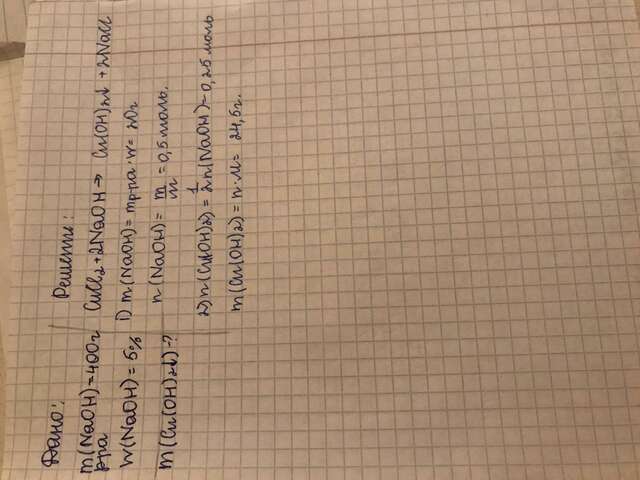 Дано:
m(NaOH)=400г
р-ра
W(NaOH)=5%
m(Cu(OH)2↓)-?
Решение:
CuCl2+2NaOH→Cu(OH)2↓+2NaCl
1) m(NaOH)=mр-ра·w=20г
n(NaOH)=m/M=0,5моль.
2) n(Cu(OH)2)=1/2n(NaOH)=0,25моль
m(Cu(OH)2)=n·M=24,5г.